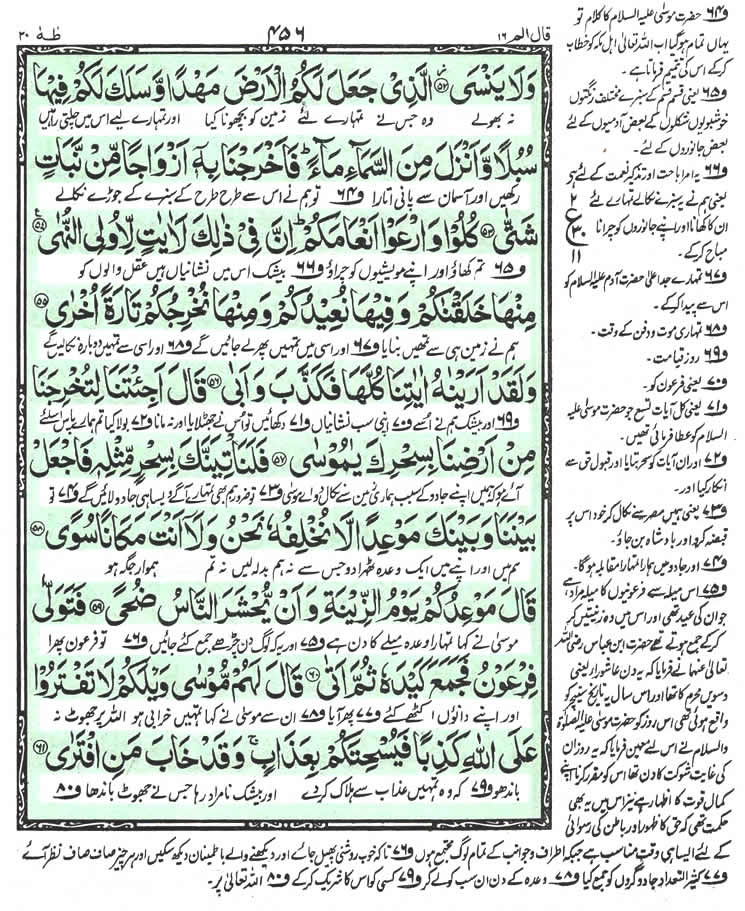 قال الم ١٦
٤٥٦
طٰهٰ ٢٠
وَلَا يَنْسَى ﴿٥٢﴾ الَّذِىْ جَعَلَ لَكُمُ الْاَرْضَ مَهْدًا وَّسَلَكَ لَكُمْ فِيْهَا
نہ بھولے وہ جس نے تمہارے لئے زمین کو بچھونا کیا اور تمہارے لیے اس میں چلتی راہیں
سُبُلًا وَّاَنْزَلَ مِنَ السَّمَآءِ مَآءً فَاَخْرَجْنَا بِهٖۤ اَزْوَاجًا مِّنْ نَّبَاتٍ
رکھیں اور آسمان سے پانی اتارا و۶۴ تو ہم نے اس سے طرح طرح کے سبزے کے جوڑے نکالے
شَتّٰى ﴿٥٣﴾ كُلُوْا وَارْعَوْا اَنْعَامَكُمْ اِنَّ فِىْ ذٰلِكَ لَاٰيٰتٍ لِّاُولِى النُّهٰى ﴿٥٤﴾
و۶۵ تم کھاؤ اور اپنے مویشیوں کو چراؤ و۶۶ بیشک اس میں نشانیاں ہیں عقل والوں کو
مِنْهَا خَلَقْنٰكُمْ وَفِيْهَا نُعِيْدُكُمْ وَمِنْهَا نُخْرِجُكُمْ تَارَةً اُخْرٰى ﴿٥٥﴾
ہم نے زمین ہی سے تمہیں بنایا و۶۷ اور اسی میں تمہیں پھر لے جائیں گے و۶۸ اور اسی سے تمہیں دوبارہ نکالیں گے
وَلَقَدْ اَرَيْنٰهُ اٰيٰتِنَا كُلَّهَا فَكَذَّبَ وَاَبٰى ﴿٥٦﴾ قَالَ اَجِئْتَنَا لِتُخْرِجَنَا
و۶۹ اور بیشک ہم نے اسے و۷۰ اپنی سب نشانیاں و۷۱ دکھائیں تو اس نے جھٹلایا اور نہ مانا و۷۲ بولا کیا تم ہمارے پاس اس لئے
مِنْ اَرْضِنَا بِسِحْرِكَ يٰمُوْسٰى ﴿٥٧﴾ فَلَنَاْتِيَنَّكَ بِسِحْرٍ مِّثْلِهٖ فَاجْعَلْ
آئے ہو کہ ہمیں اپنے جادو کے سبب ہماری زمین سے نکال دو اے موسیٰ و۷۳ تو ضرور ہم بھی تمہارے آگے ویسا ہی جادو لائیں گے و۷۴ تو
بَيْنَنَا وَبَيْنَكَ مَوْعِدًا لَّا نُخْلِفُهٗ نَحْنُ وَلَاۤ اَنْتَ مَكَانًا سُوًى ﴿٥٨﴾
ہم میں اور اپنے میں ایک وعدہ ٹھہرا دو جس سے نہ ہم بدلہ لیں نہ تم ہموار جگہ ہو
قَالَ مَوْعِدُكُمْ يَوْمُ الزِّيْنَةِ وَاَنْ يُّحْشَرَ النَّاسُ ضُحًى ﴿٥٩﴾ فَتَوَلّٰى
موسیٰ نے کہا تمہارا وعدہ میلے کا دن ہے و۷۵ اور یہ کہ لوگ دن چڑھے جمع کئے جائیں و۷۶ تو فرعون پھرا
فِرْعَوْنُ فَجَمَعَ كَيْدَهٗ ثُمَّ اَتٰى ﴿٦٠﴾ قَالَ لَهُمْ مُّوْسٰى وَيْلَكُمْ لَا تَفْتَرُوْا
اور اپنے دانؤں اکٹھے کئے و۷۷ پھر آیا و۷۸ ان سے موسیٰ نے کہا تمہیں خرابی ہو اللہ پر جھوٹ نہ
عَلَى اللّٰهِ كَذِبًا فَيُسْحِتَكُمْ بِعَذَابٍ وَقَدْ خَابَ مَنِ افْتَرٰى ﴿٦١﴾
باندھو و۷۹ کہ وہ تمہیں عذاب سے ہلاک کر دے اور بیشک نامراد رہا جس نے جھوٹ باندھا و۸۰
و۶۴ حضرت موسیٰ علیہ السلام کا کلام تو
یہاں تمام ہو گیا اب اللہ تعالیٰ اہل مکہ کو خطاب
کر کے اس کی تتمیم فرماتا ہے۔
و۶۵ یعنی قسم قسم کے سبزے مختلف رنگتوں
خوشبوؤں شکلوں کے بعض آدمیوں کے لئے
بعض جانوروں کے لئے۔
و۶۶ یہ امر اباحت اور تذکیر نعمت کے لئے ہے
یعنی ہم نے یہ سبزے نکالے تمہارے لئے
ان کا کھانا اور اپنے جانوروں کو چرانا
مباح کر کے۔
٢
ع
٣٠
١١
و۶۷ تمہارے جد اعلیٰ حضرت آدم علیہ السلام کو
اس سے پیدا کر کے۔
و۶۸ تمہاری موت و دفن کے وقت۔
و۶۹ روز قیامت۔
و۷۰ یعنی فرعون کو۔
و۷۱ یعنی کل آیات تسع جو حضرت موسیٰ علیہ
السلام کو عطا فرمائی تھیں۔
و۷۲ اور ان آیات کو سحر بتایا اور قبول حق سے
انکار کیا اور۔
و۷۳ یعنی ہمیں مصر سے نکال کر خود اس پر
قبضہ کرو اور بادشاہ بن جاؤ۔
و۷۴ اور جادو میں ہمارا تمہارا مقابلہ ہو گا۔
و۷۵ اس میلہ سے فرعونیوں کا میلہ مراد ہے
جو ان کی عید تھی اور اس میں وہ زینتیں کر
کر کے جمع ہوتے تھے حضرت ابن عباس رضی اللہ
تعالیٰ عنہما نے فرمایا کہ یہ دن عاشوراء یعنی
دسویں محرم کا تھا اور اس سال یہ تاریخ سنیچر کو
واقع ہوئی تھی اس روز کو حضرت موسیٰ علیہ الصلوٰۃ
والسلام نے اس لئے معین فرمایا کہ یہ روز ان
کی غایت شوکت کا دن تھا اس کو مقرر کرنا اپنے
کمال قوت کا اظہار ہے نیز اس میں یہ بھی
حکمت تھی کہ حق کا ظہور اور باطل کی رسوائی
کے لئے ایسا ہی وقت مناسب ہے جبکہ اطراف و جوانب کے تمام لوگ مجتمع ہوں و۷۶ تاکہ خوب روشنی پھیل جائے اور دیکھنے والے باطمینان دیکھ سکیں اور ہر چیز صاف صاف نظر آئے
و۷۷ کثیر التعداد جادوگروں کو جمع کیا و۷۸ وعدہ کے دن ان سب کو لے کر و۷۹ کسی کو اس کا شریک کر کے و۸۰ اللہ تعالیٰ پر۔